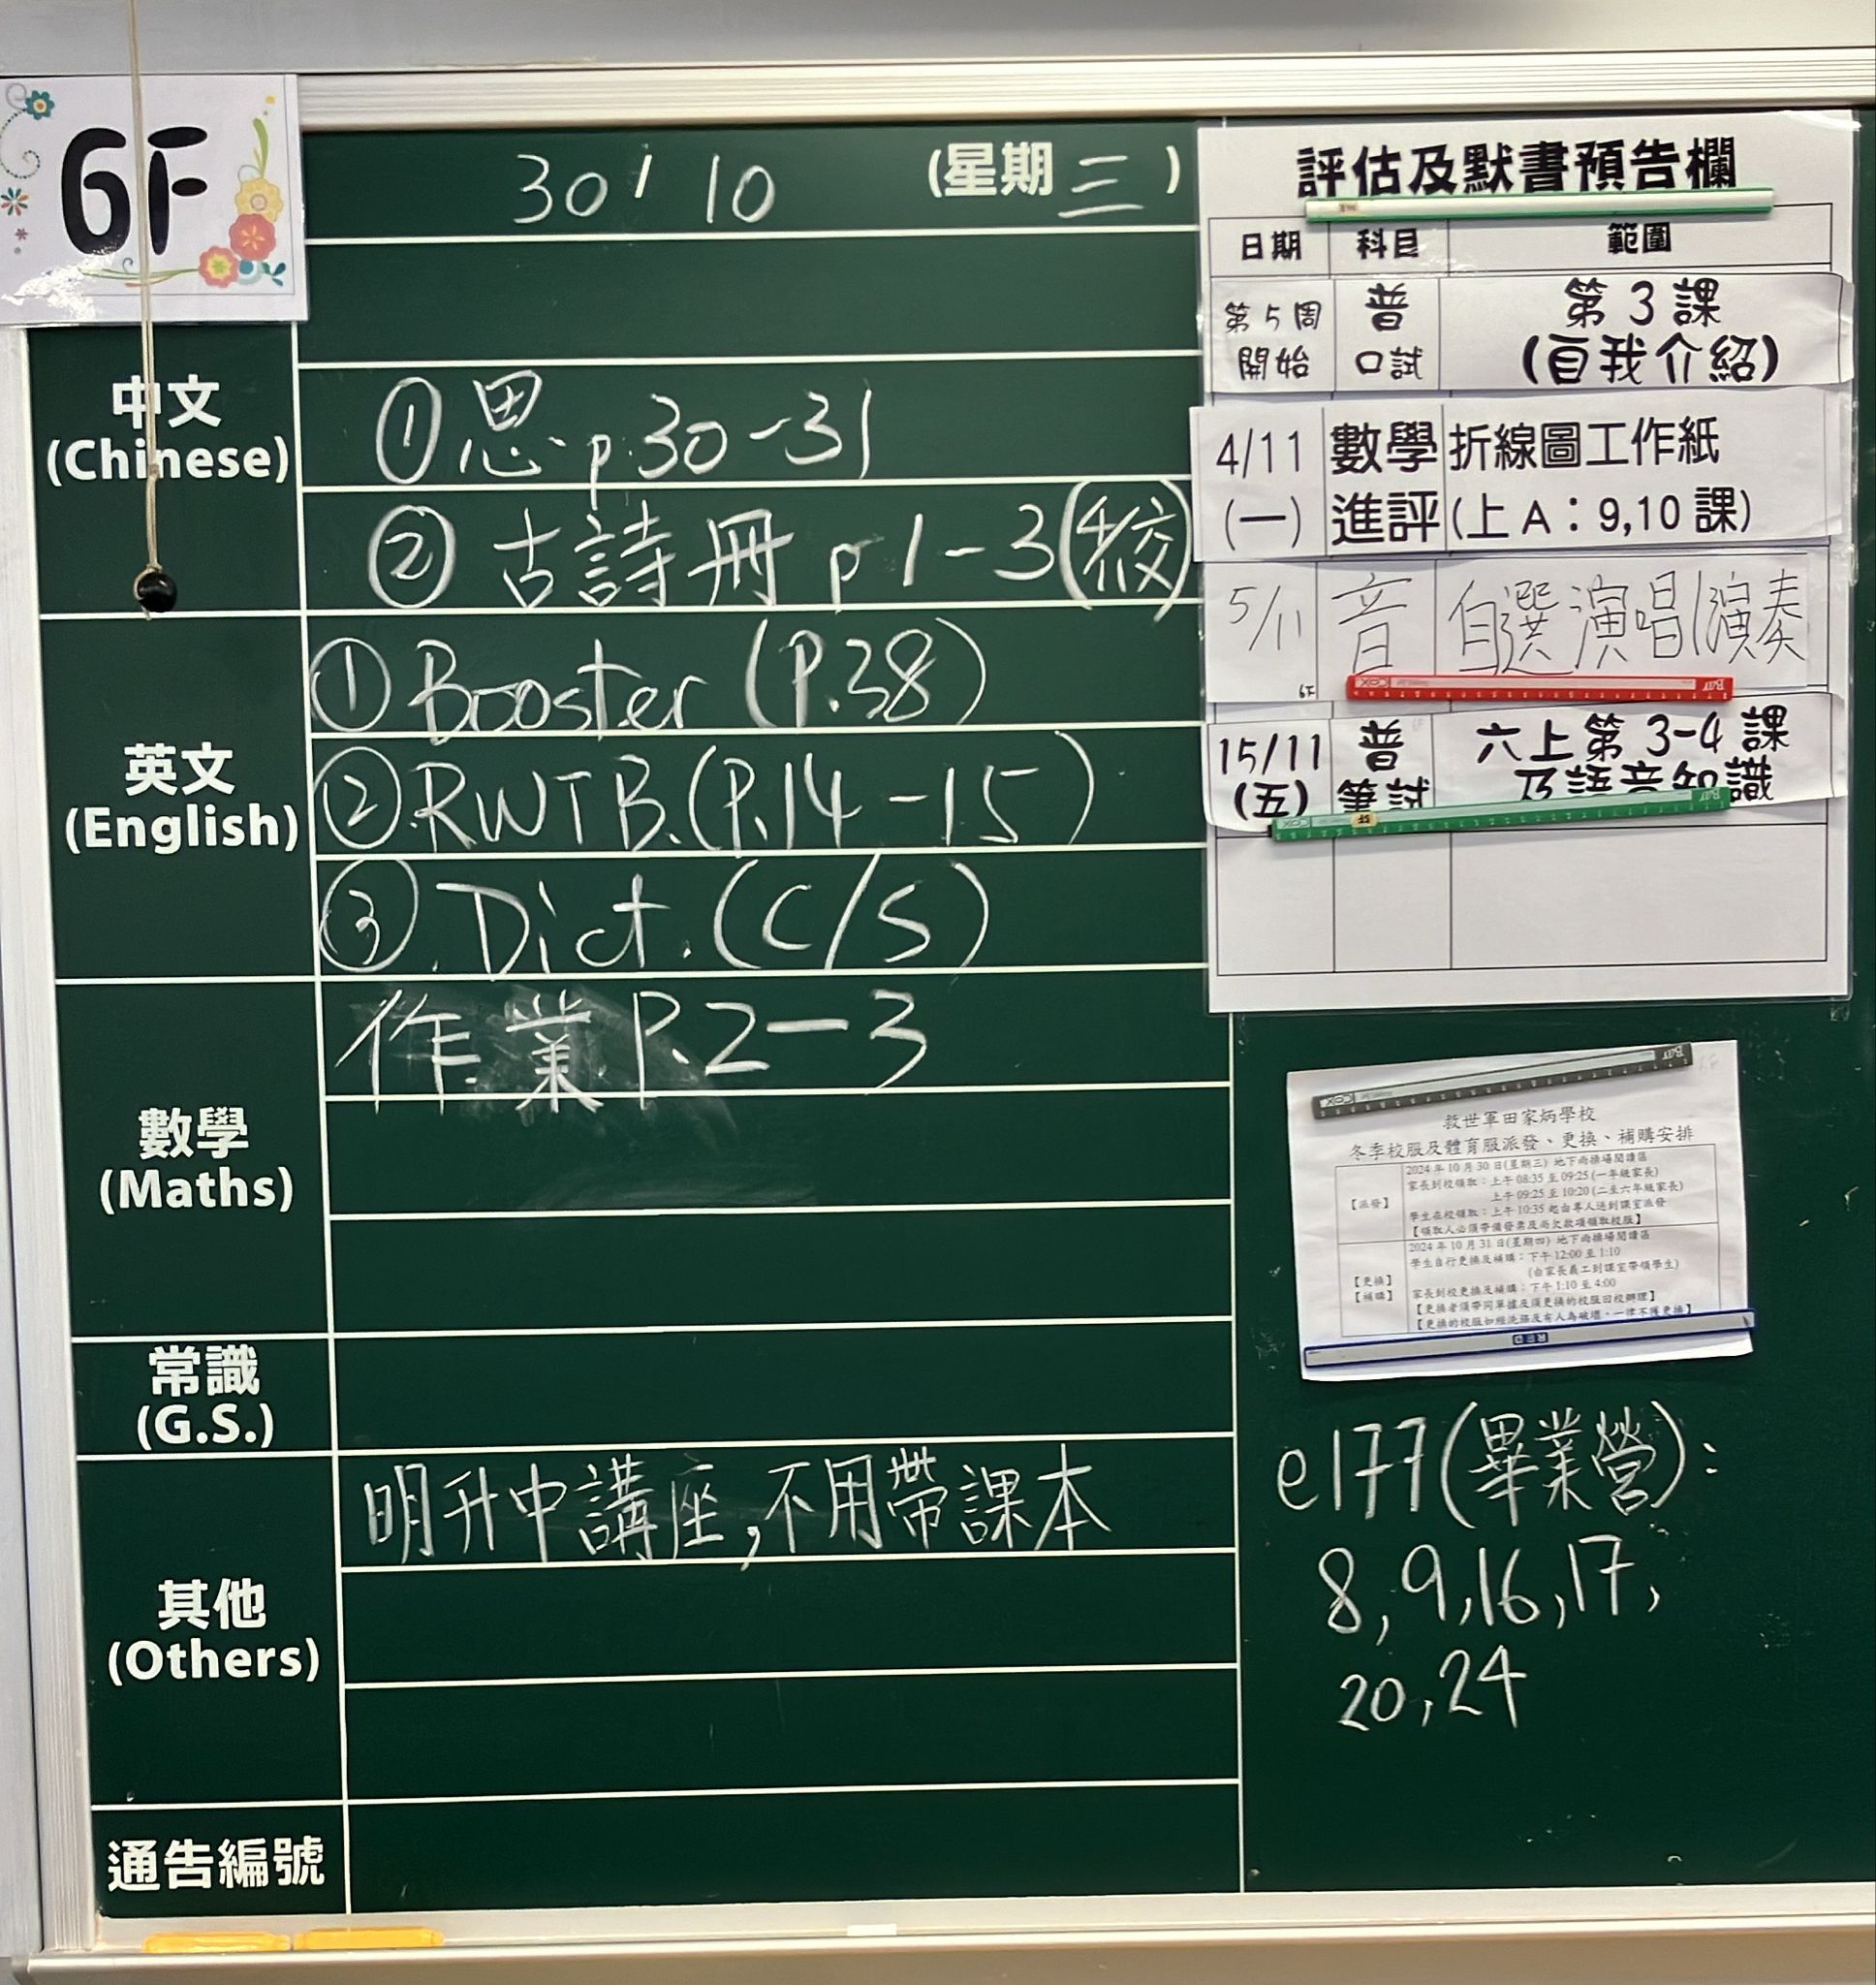 6F
30/10 (星期三)
中文
(Chinese)
①思 p.30-31
②古詩冊 p1-3
英文
(English)
①Booster (P.38)
②RWTB.(P.14-15)
③.Dict.(C/S)
數學
(Maths)
作業 P.2-3
常識
(G.S.)
其他
(Others)
明升中講座,不用帶課本
通告編號
評估及默書預告欄
日期 科目 範圍
第5周 普 第3課
開始 口試 (自我介紹)
4/11 數學 折線圖工作紙
(一) 進評 (上A：9,10課)
5/11 音 自選演唱/演奏
6F
15/11 普 六上第3-4課
(五) 筆試 及語音知識
救世軍田家炳學校
冬季校服及體育服派發、更換、補購安排
【派發】
2024年10月30日(星期三) 地下雨操場閱讀區
家長到校領取：上午08:35至09:25(一年級家長)
上午09:25至10:20(二至六年級家長)
學生在校領取：上午10:35起由專人送到課室派發
【領取人必須帶備發票及尚欠款項領取校服】
【更換】
【補購】
2024年10月31日(星期四) 地下雨操場閱讀區
學生自行更換及補購：下午12:00至1:10
(由家長義工到課室帶領學生)
家長到校更換及補購：下午1:10至4:00
【更換者須帶同單據及須更換的校服回校辦理】
【更換的校服如經洗滌及有人為破壞，一律不獲更換】
e177(畢業營):
8,9,16,17,
20,24